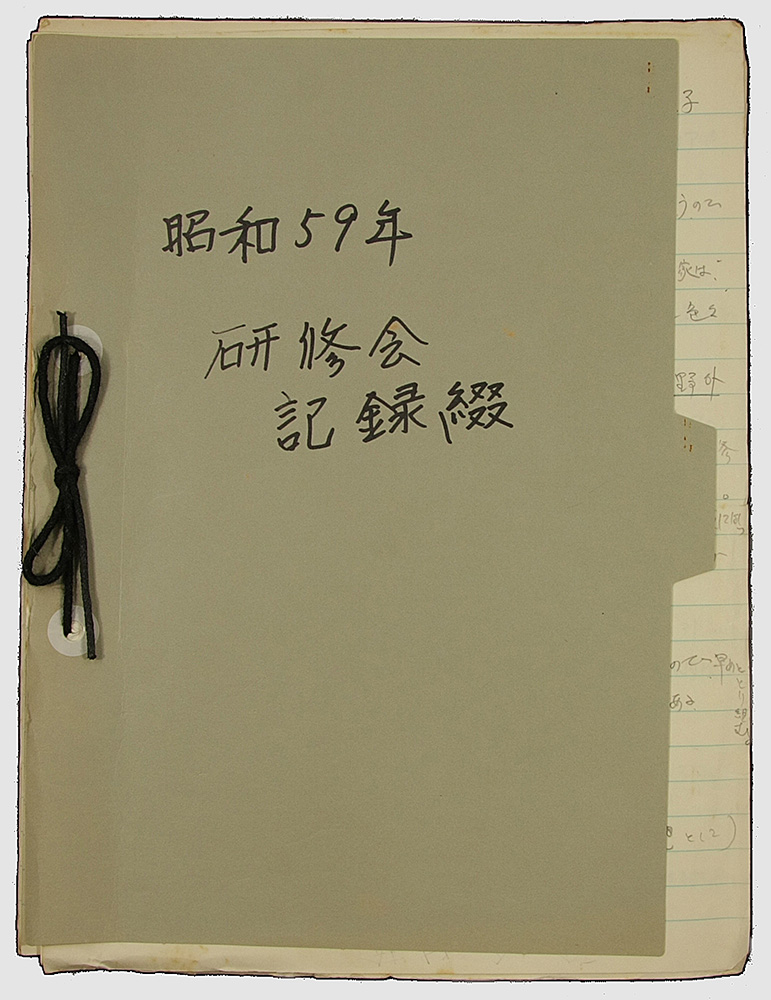 昭和59年
研修会
記録綴
子
うので
は
色々
野外
。
ので早めに
ある
として)